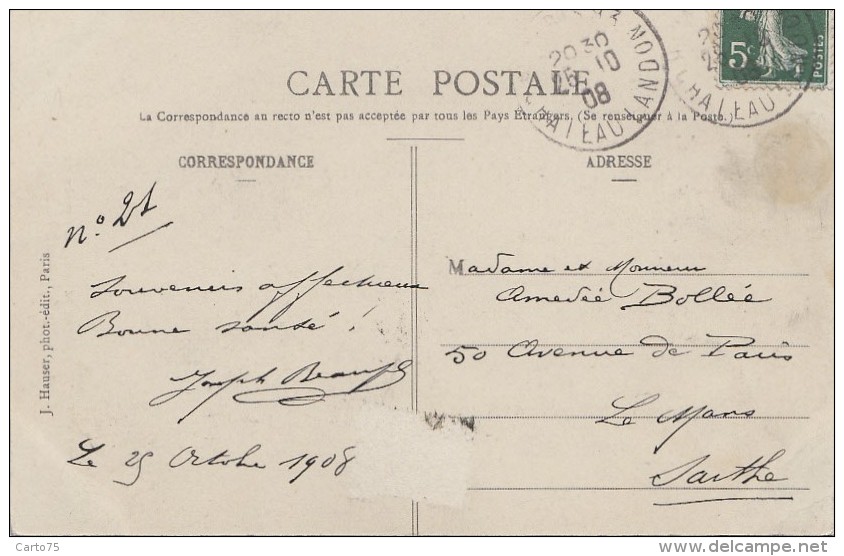 CARTE POSTALE
La Correspondance au recto n'est pas acceptée par tous les Pays Etrangers. (Se renseigner à la Poste.)
CORRESPONDANCE
ADRESSE
20 30
25 - 10
08
CHATEAU LANDON
5c
POSTES
N° 21
Souvenirs affectueux
Bonne santé !
Joseph
Le 25 Octobre 1908
J. Hauser, phot.-édit., Paris
Madame et Monsieur
Amedée Bollée
50 Avenue de Paris
Le Mans
Sarthe
Carto75
www.delcampe.net